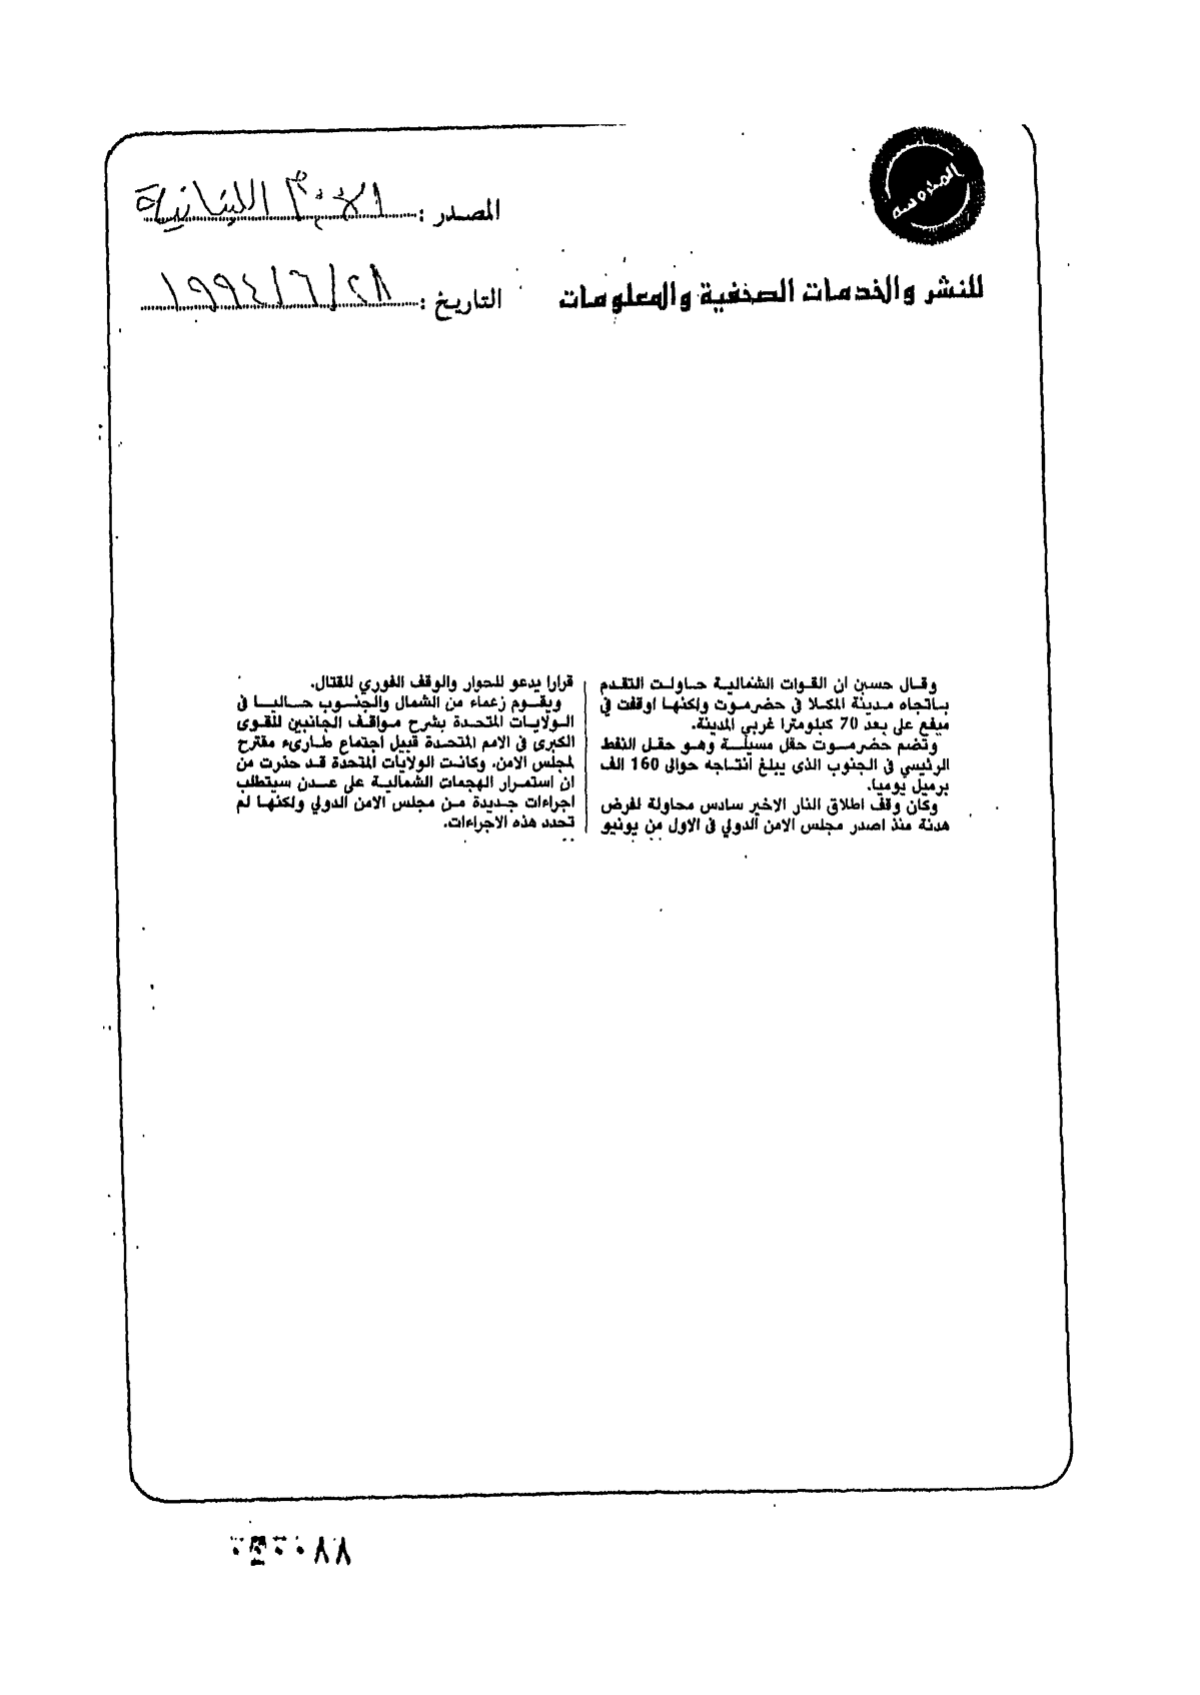 المحروسة
المصدر :
للنشر والخدمات الصحفية والمعلومات
التاريخ : ٢٨/٦/١٩٩٤
وقال حسين ان القوات الشمالية حاولت التقدم
باتجاه مدينة المكلا في حضرموت ولكنها اوقفت في
ميفع على بعد 70 كيلومترا غربي المدينة.
وتضم حضرموت حقل مسيلة وهو حقل النفط
الرئيسي في الجنوب الذى يبلغ انتاجه حوالى 160 الف
برميل يوميا.
وكان وقف اطلاق النار الاخير سادس محاولة لفرض
هدنة منذ اصدر مجلس الامن الدولي في الاول من يونيو
قرارا يدعو للحوار والوقف الفوري للقتال.
ويقوم زعماء من الشمال والجنوب حاليا في
الولايات المتحدة بشرح مواقف الجانبين للقوى
الكبرى في الامم المتحدة قبيل اجتماع طارىء مقترح
لمجلس الامن. وكانت الولايات المتحدة قد حذرت من
ان استمرار الهجمات الشمالية على عدن سيتطلب
اجراءات جديدة من مجلس الامن الدولي ولكنها لم
تحدد هذه الاجراءات.